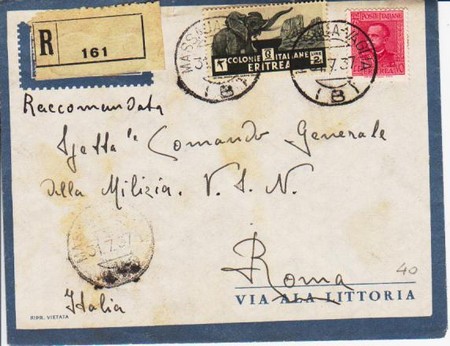 R
161
MASSAUA
31.7.37
(B)
COLONIE ITALIANE
ERITREA
POSTE ITALIANE
ERITREA
Raccomandata
Spett" Comando Generale
della Milizia V. S. N.
31.7.37
Roma
40
Italia
VIA ALA LITTORIA
RIPR. VIETATA